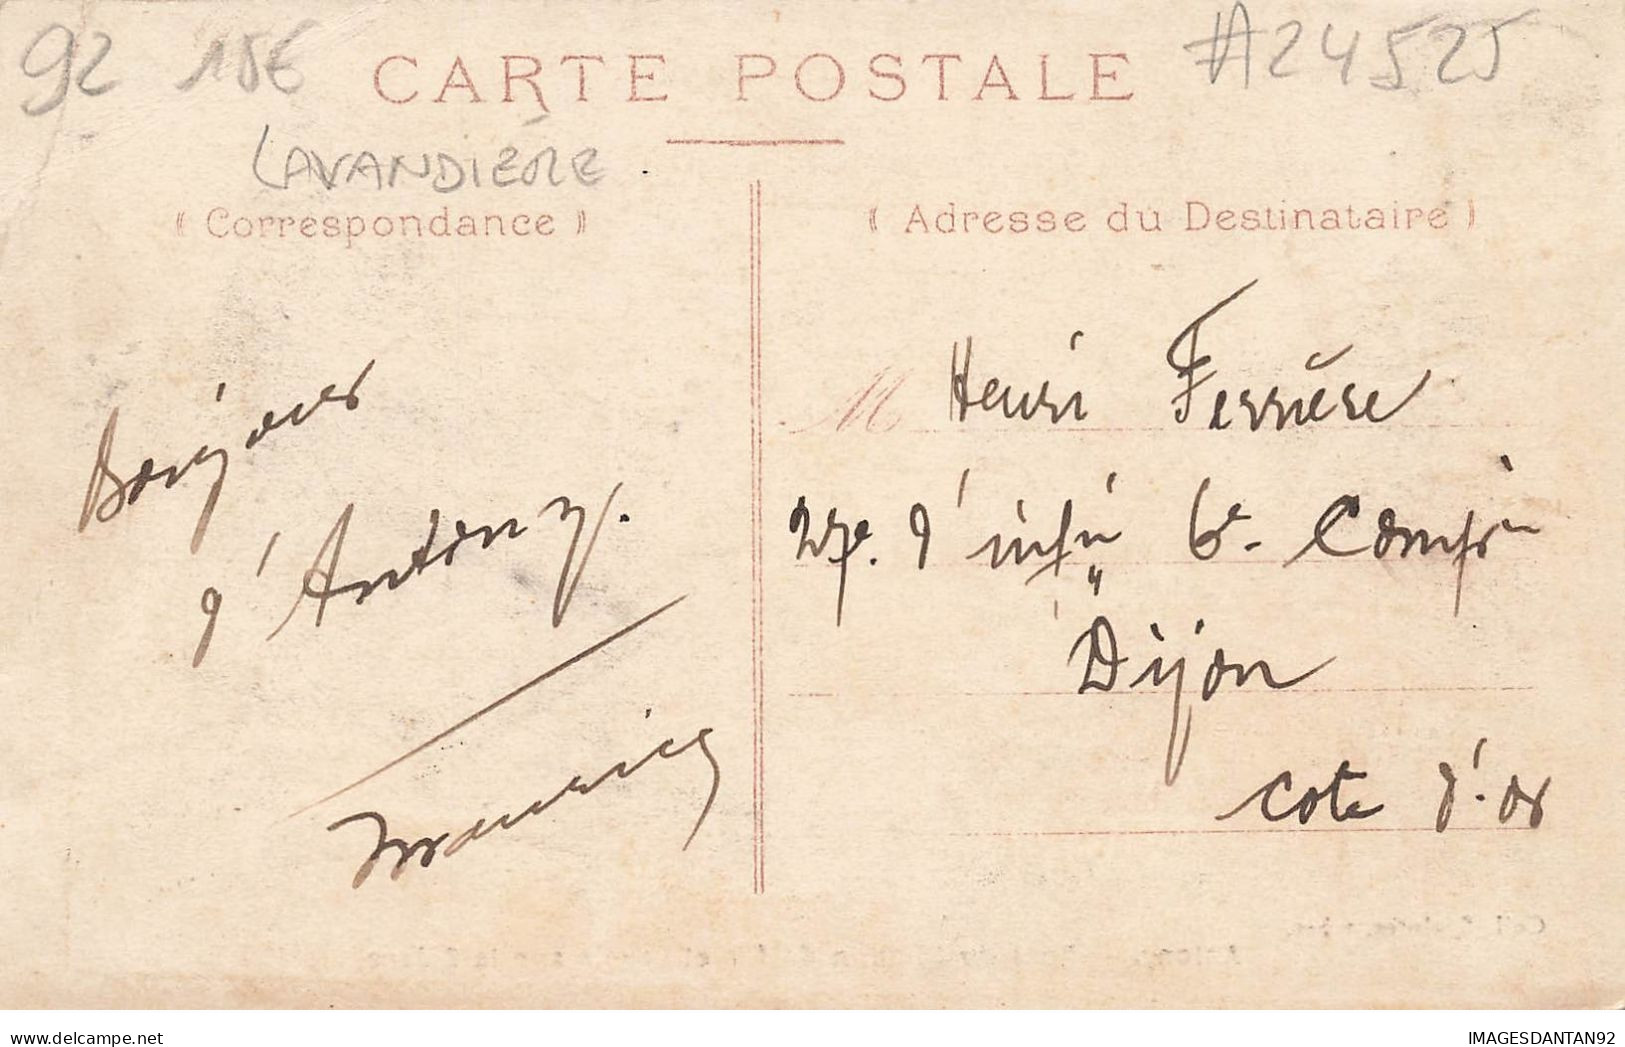 92 15€ CARTE POSTALE #24525
LAVANDIÈRE
(Correspondance)
(Adresse du Destinataire)
Bonjour
d'Antony.
Maurice
M Henri Ferrière
27e. d'infie 6e Compie
Dijon
Cote d'or
delcampe.net
IMAGESDANTAN92